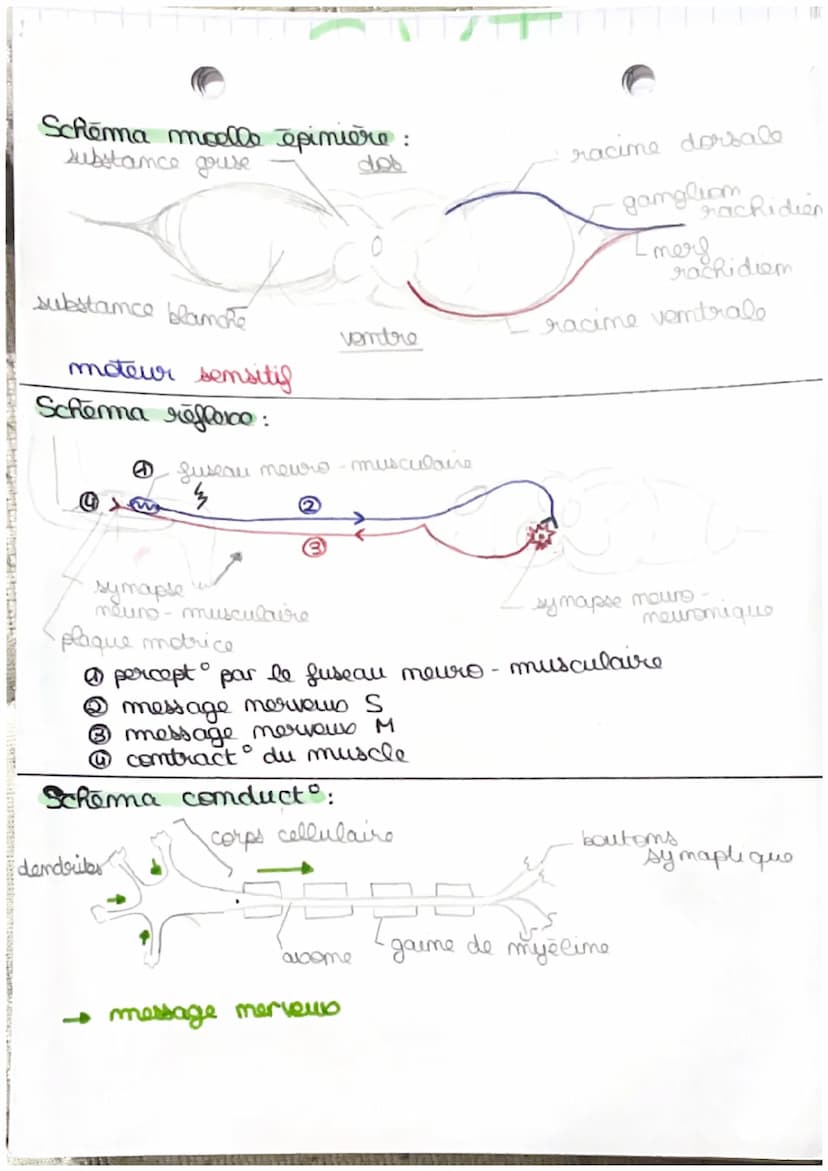 SVT
Schéma moelle épinière :
substance grise
dos
racine dorsale
ganglion
rachidien
nerf
rachidien
substance blanche
ventre
racine ventrale
moteur sensitif
Schéma réflexe :
① fuseau neuro-musculaire
④
②
③
synapse
neuro-musculaire
synapse neuro-
neuronique
plaque motrice
① percept° par le fuseau neuro-musculaire
② message nerveux S
③ message nerveux M
④ contract° du muscle
Schéma conduct° :
corps cellulaire
boutons
synaptique
dendrites
axone
gaine de myéline
→ message nerveux